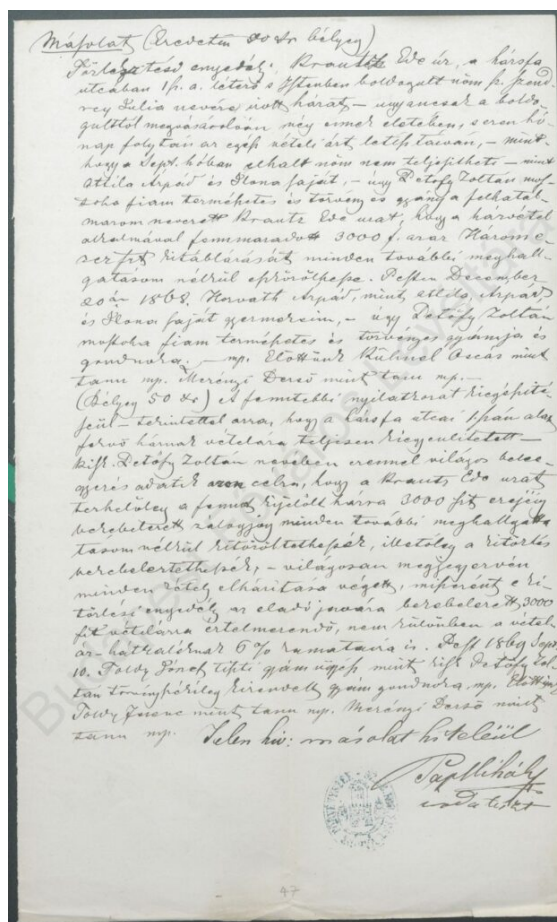 Másolat (Eredetin 50 kr bélyeg)
Törlesztesd engedély. Krausz Ede úr, a hársfa
utcában 1 sz. a. létező s Istenben boldogult nőm sz. Szend
rey Julia nevére irott házát – ugyancsak a boldo
gulttól megvásárolván még ennek életében, s ezen hó
nap folytán az egész vételi árt lefizetvén, – mint
hogy a Sept. hóban elhalt nőm nem teljesítheti – mint
Attila Árpád és Ilona saját, – úgy Petőfy Zoltán mos
toha fiam természetes és törvényes gyámja felhatal
mazom nevezett Krausz Ede urat, hogy a házvétel
alkalmával fennmaradott 3000 f. azaz Három e
zer frt kitáblázását minden további meghall
gatásom nélkül eszközölhesse. Pesten December
20án 1868. Horváth Árpád, mint Attila, Árpád,
és Ilona saját gyermekeim, – úgy Petőfy Zoltán
mostoha fiam természetes és törvényes gyámja és
gondnoka. – mp. Előttünk Kühnel mint
tanu mp. Merényi Dezső mint tanu mp. –
(Bélyeg 50 kr) A fenntebbi nyilatkozat kiegészíté
séül – tekintettel arra, hogy a hársfa utcai 1 szám alatt
fekvő háznak vételára teljesen kiegyenlítetett –
kisk. Petőfy Zoltán nevében ezennel világos bele-
egyezés adatik azon célra, hogy a Krausz Ede urat
terhelőleg a fennt kijelölt házra 3000 frt erejéig
bekebelezett zálogjog minden további meghallgatta
tásom nélkül kitöröltethessék, illetőleg a kitörlés
bekebeleztethessék, – világosan megjegyezvén
minden kétely elhárítása végett, miszerint e ki
törlési engedély az eladó javára bekebelezett 3000
frt vételárra értelmezendő, nem különben a vétel
ár-hátraléknak 6% kamataira is. Pest 1869 Sept
10. Toldy József tiszti gyám ügyész mint kisk. Petőfy Zol
tán törvényszékileg kirendelt gyám gondnoka, mp. Előttem
Toldy Ferenc mint tanu mp. Merényi Dezső mint
tanu mp. Jelen hiv: másolat hiteléül
Pap Mihály
irodatiszt
47